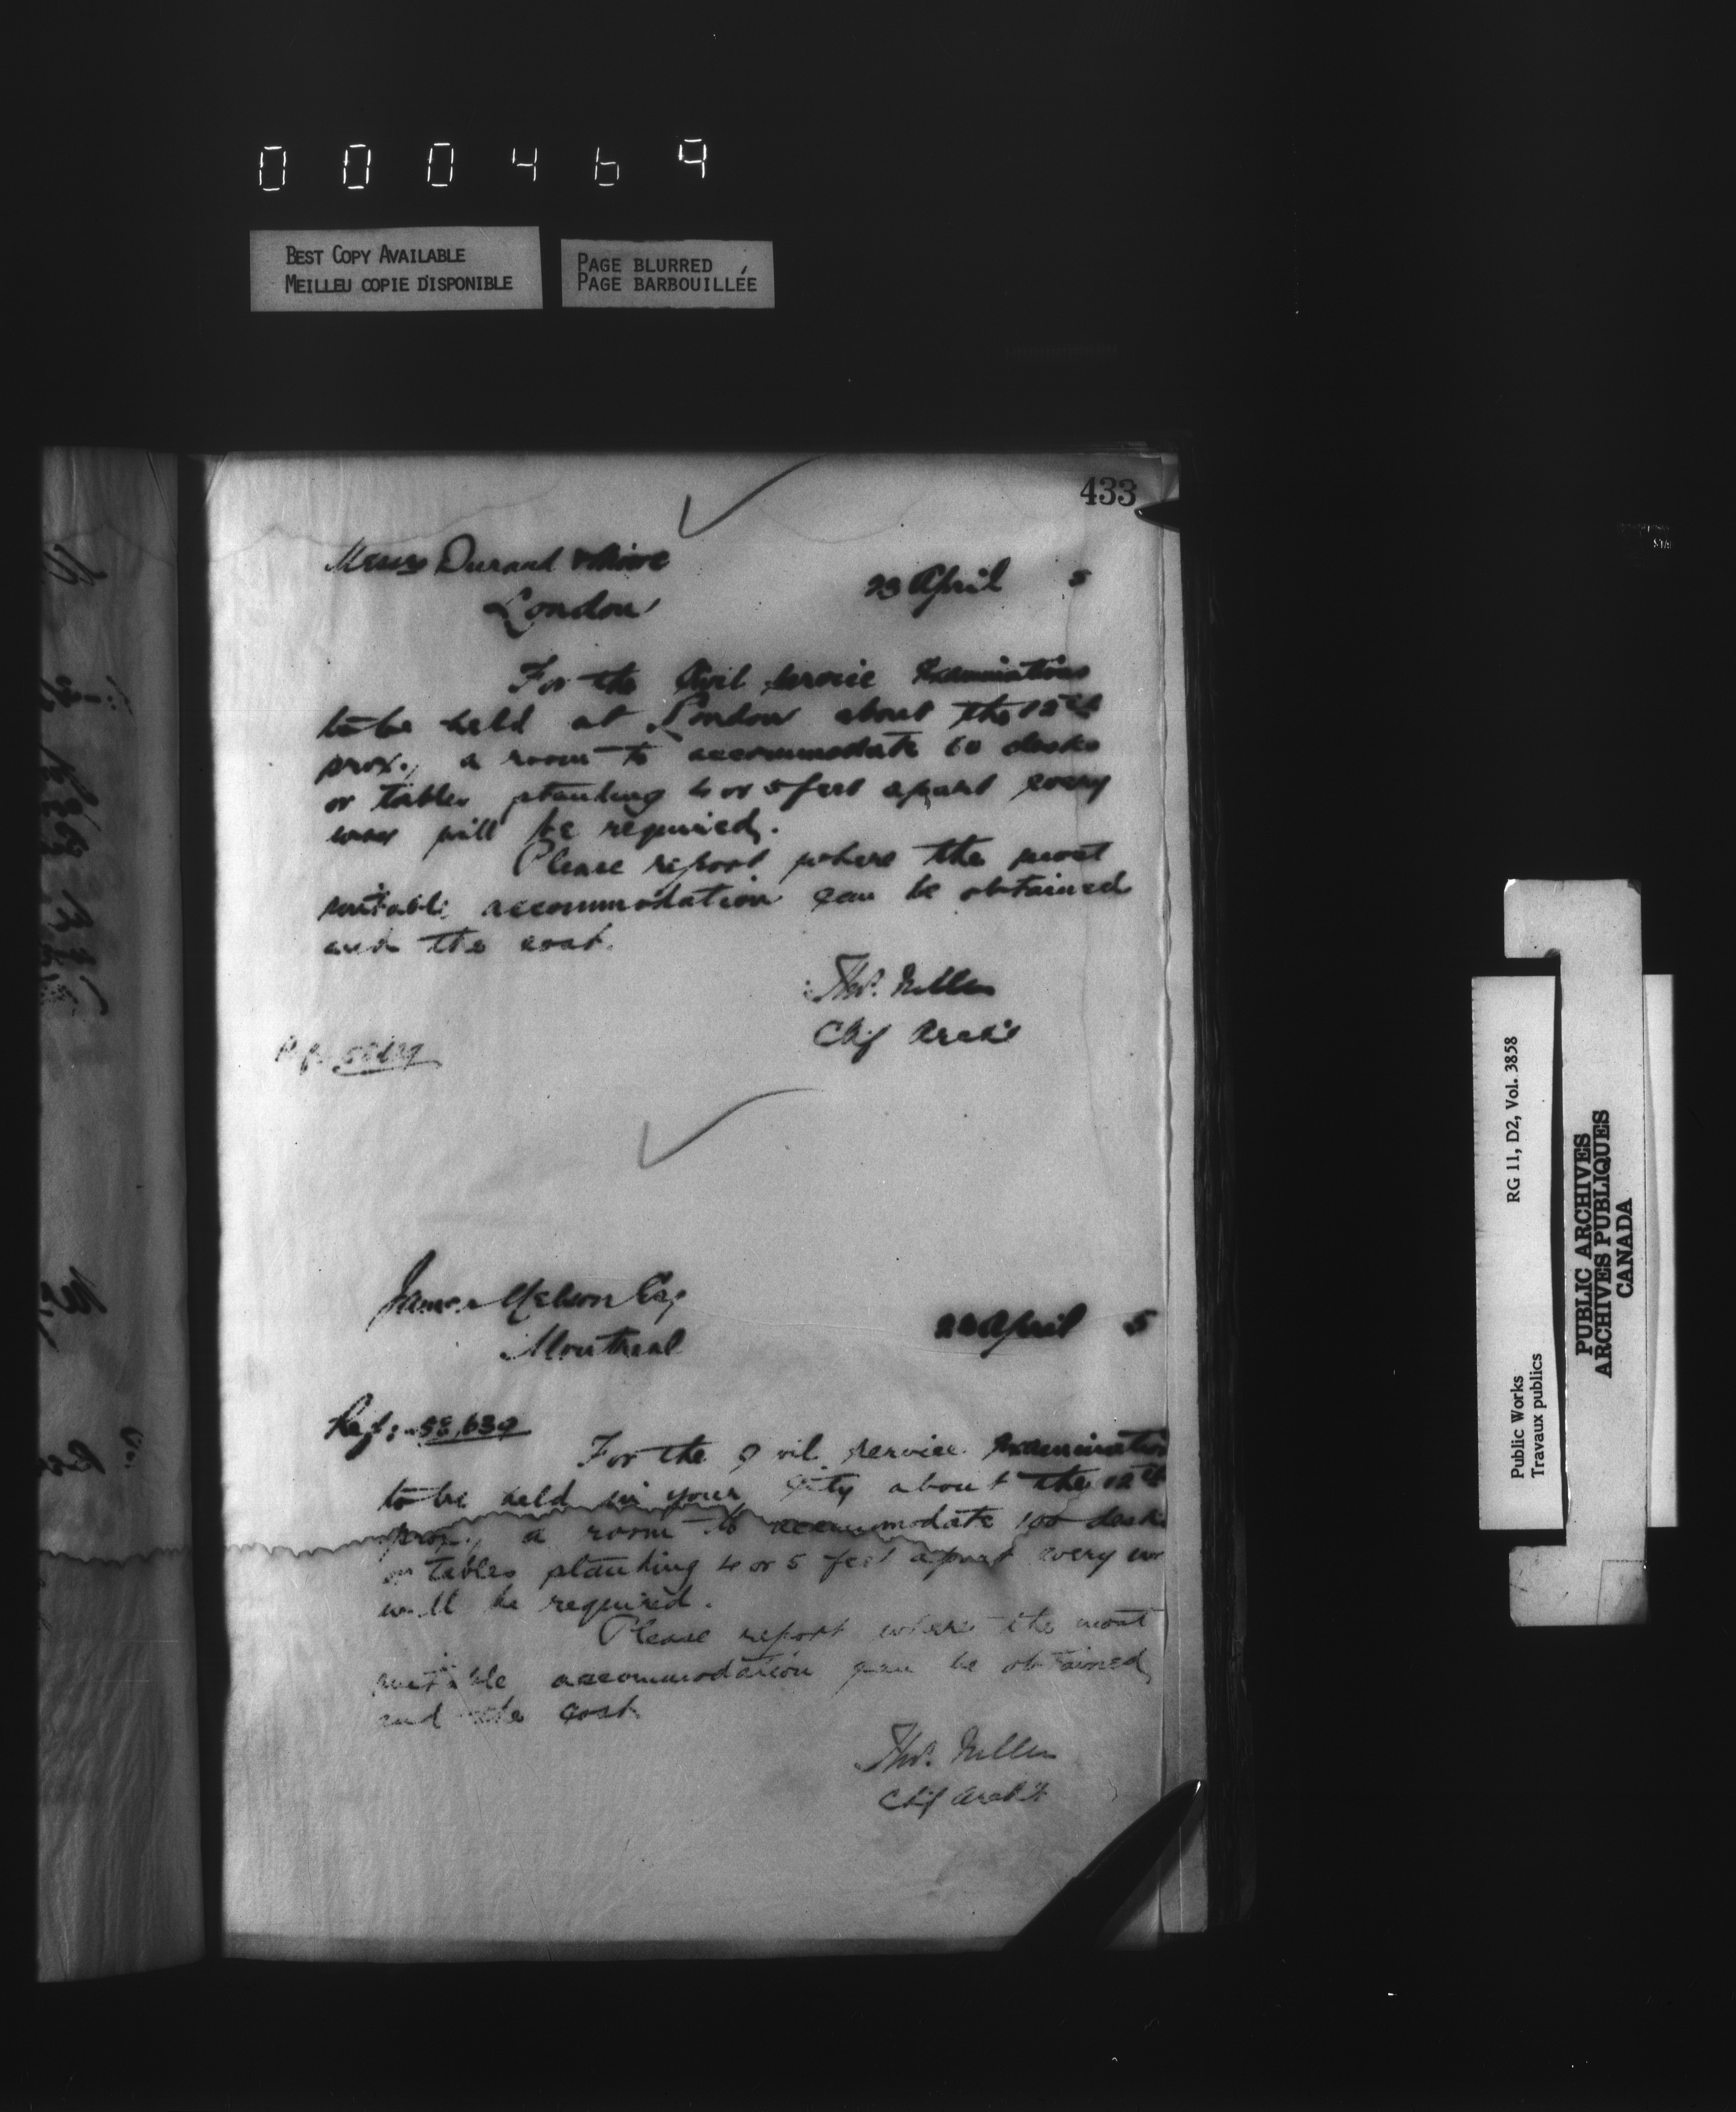 000469
BEST COPY AVAILABLE
MEILLEU COPIE DISPONIBLE
PAGE BLURRED
PAGE BARBOUILLÉE
433
Messrs Durand & Moore
London
23 April 5
For the Civil Service Examination
to be held at London about the 12th
prox., a room to accommodate 60 desks
or tables standing 4 or 5 feet apart every
way will be required.
Please report where the most
suitable accommodation can be obtained
and the cost.
Thos. Fuller
Chf Archt
James Nelson Esq
Montreal
April 5
Ref: 58,639
For the Civil Service Examination
to be held in your City about the 12th
prox., a room to accommodate 100 desks
or tables standing 4 or 5 feet apart every
will be required.
Please report where the most
suitable accommodation can be obtained
and the cost.
Thos. Fuller
Chf Archt
Public Works
Travaux publics
RG 11, D2, Vol. 3858
PUBLIC ARCHIVES
ARCHIVES PUBLIQUES
CANADA